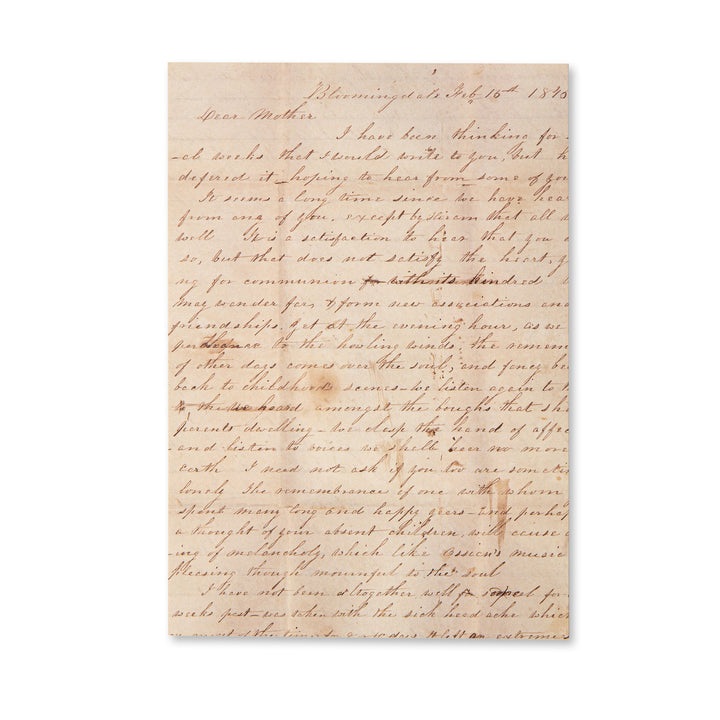 Bloomingdale Feb 15th 184
Dear Mother
I have been thinking for
al weeks that I would write to you, but h
defered it hoping to hear from some of you
It seems a long time since we have hea
from any of you, except by Hiram that all
well It is a satisfaction to hear that you
so, but that does not satisfy the heart, y
ng for communion with its kindred
may wander far, & form new associations and
friendships, yet at the evening hour, as we
to the howling winds, the remem
of other days comes over the soul, and fancy be
back to childhoods scenes – we listen again to
we heard amongst the boughs that sh
parents dwelling – we clasp the hand of affec
– and listen to voices we shall hear no more
earth I need not ask if you too are someti
lonely The remembrance of one with whom
spent many long and happy years – and perhap
a thought of your absent children, will cause
ing of melancholy, which like Ossian's music
pleasing though mournful to the soul
I have not been altogether well for
weeks past – was taken with the sick head ache which
most of the time days It left an extreme